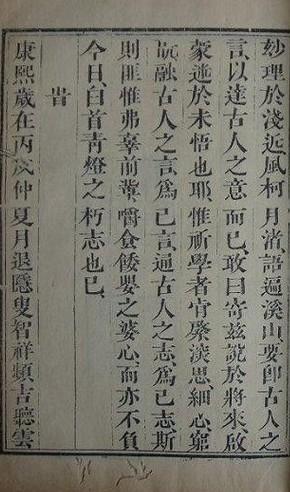 妙理於淺近風柯月渚、語遍溪山、要即古人之
言、以達古人之意而已、敢曰寄茲說於將來、啟
蒙迷於未悟也耶、惟祈學者宵齋淡思、細心窮
玩、融古人之言、為己言、通古人之志、為己志、斯
則匪惟弗辜前輩、嚼食餧嬰之婆心、而亦不負
今日、白首青燈之朽志也已、
旹
康熙歲在丙戌仲夏月退隱叟智祥頻吉聽雲